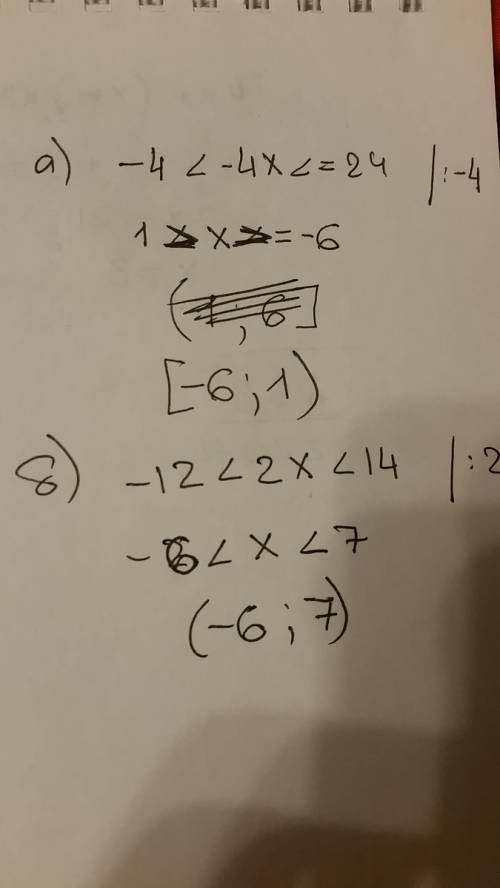 а) -4 < -4x <= 24 | :-4
1 > x >= -6
(1; 6]
[-6; 1)
б) -12 < 2x < 14 | :2
-6 < x < 7
(-6; 7)